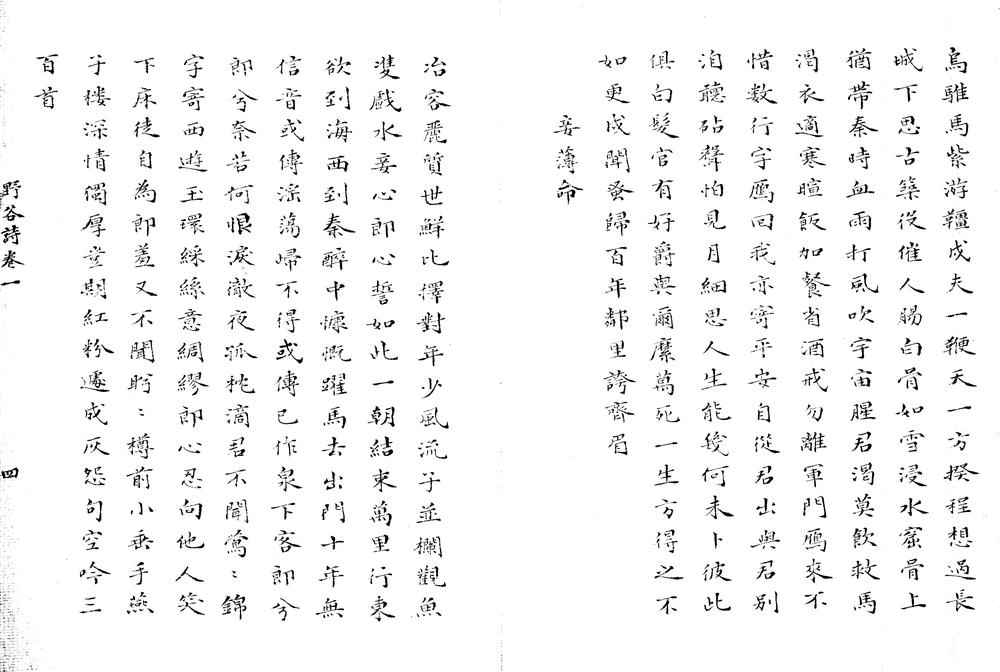 烏騅馬紫游韁成夫一鞭天一方揆程想過長
城下思古築役催人腸白骨如雪浸水窟骨上
猶帶秦時血雨打風吹宇宙腥君渴莫飲救馬
渴衣適寒暄飯加餐省酒戒勿離軍門鴈來不
惜數行字鴈回我亦寄平安自從君出與君別
洎聽砧聲怕見月細思人生能幾何未卜彼此
俱白髮官有好爵與爾縻萬死一生方得之不
如更戍聞蚤歸百年鄰里誇齊眉
妾薄命
冶容麗質世鮮比擇對年少風流子並欄觀魚
雙戲水妾心郎心誓如此一朝結束萬里行東
欲到海西到秦醉中慷慨躍馬去出門十年無
信音或傳滛蕩歸不得或傳已作泉下客郎兮
郎兮奈若何恨淚徹夜孤枕滴君不聞鶯〻錦
字寄西遊玉環綵絲意綢繆郎心忍向他人笑
下床徒自為郎羞又不聞盻〻樽前小垂手燕
子樓深情獨厚豈期紅粉遽成灰怨句空吟三
百首
野谷詩卷一
四